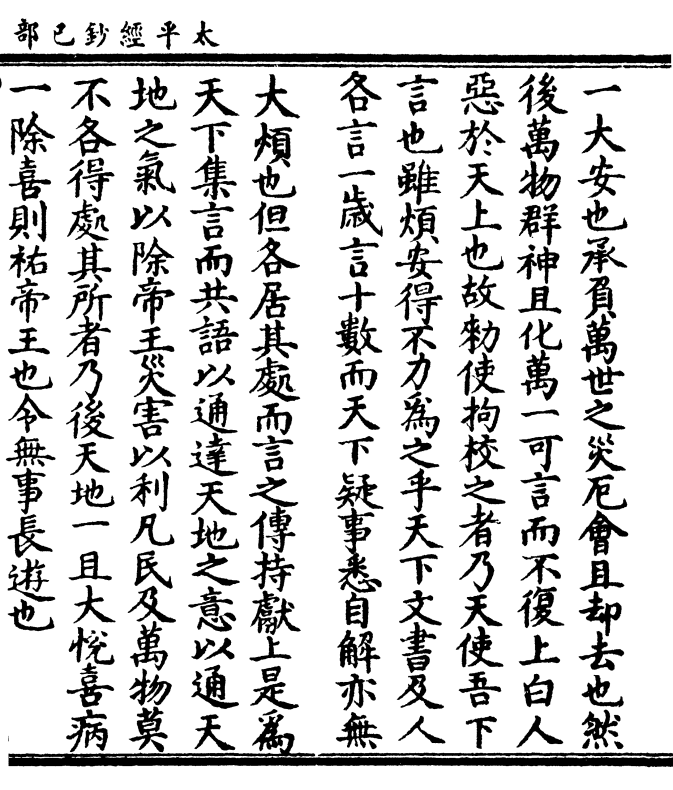 太平經鈔已部
一大安也承負萬世之災厄會且却去也然
後萬物群神且化萬一可言而不復上白人
惡於天上也故勑使拘校之者乃天使吾下
言也雖煩安得不力爲之乎天下文書及人
各言一歲言十數而天下疑事悉自解亦無
大煩也但各居其處而言之傳持獻上是爲
天下集言而共語以通達天地之意以通天
地之氣以除帝王災害以利凡民及萬物莫
不各得處其所者乃後天地一且大悅喜病
一除喜則祐帝王也令無事長遊也